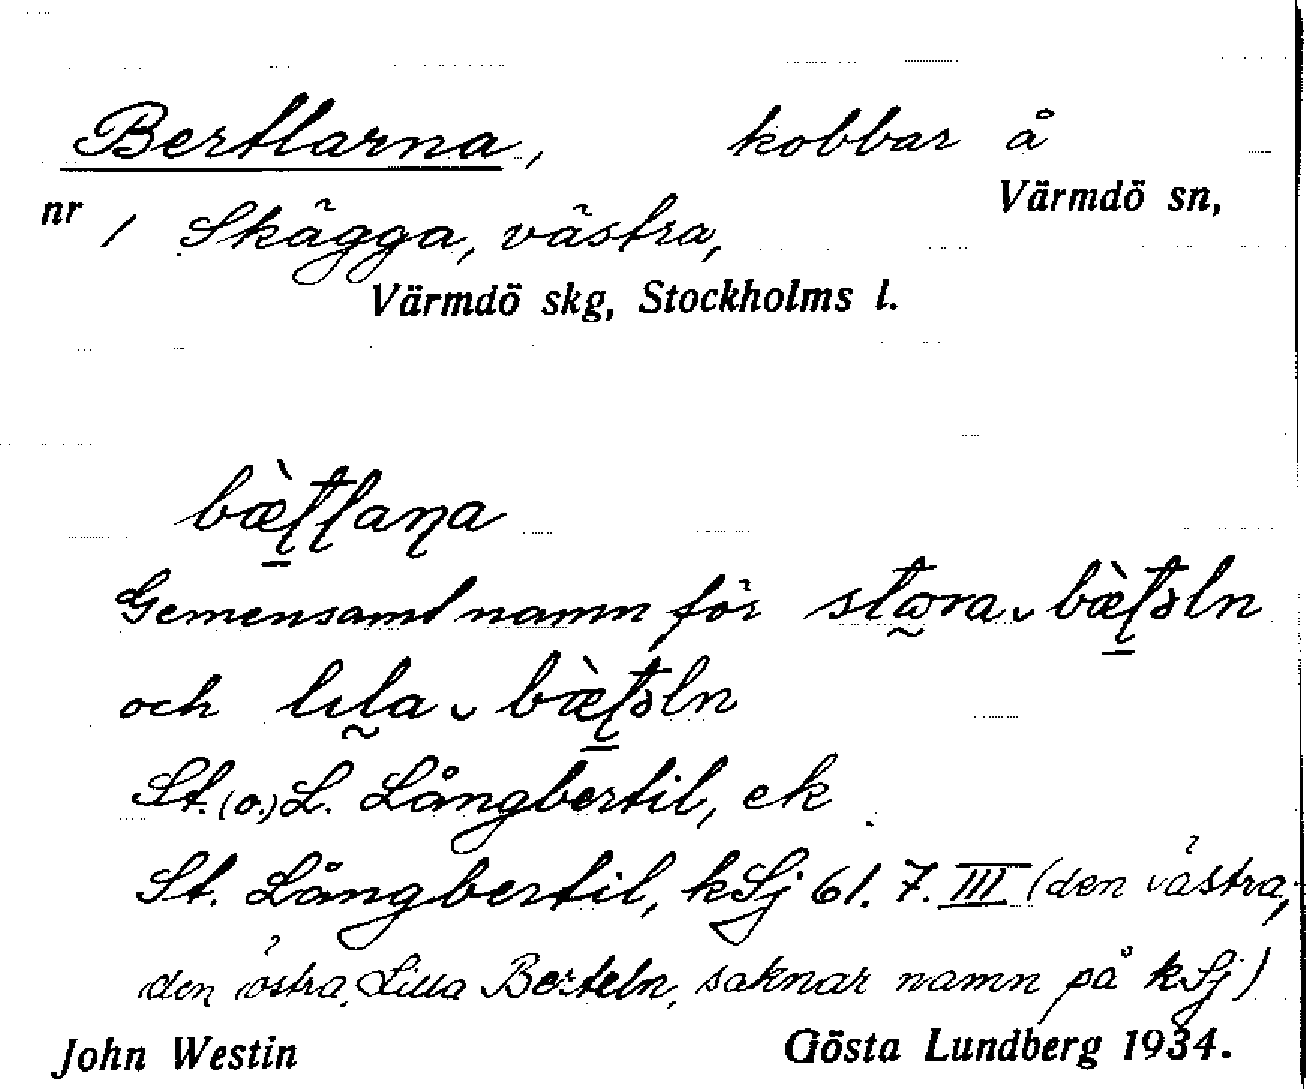 Bertlarna, kobbar å
Värmdö sn,
nr 1 Skägga, västra,
Värmdö skg, Stockholms l.
bæ̀t̲l̥aɳa
Gemensamt namn för stɷ̰ra ̮ bæ̀ʈ̲əln
och lıl̰a ̮ bæ̀ʈ̲əln
St. (o.) L. Långbertil, ek
St. Långbertil, kSj 61. 7. III (den västra,
den östra, Lilla Berteln, saknar namn på kSj)
John Westin Gösta Lundberg 1934.